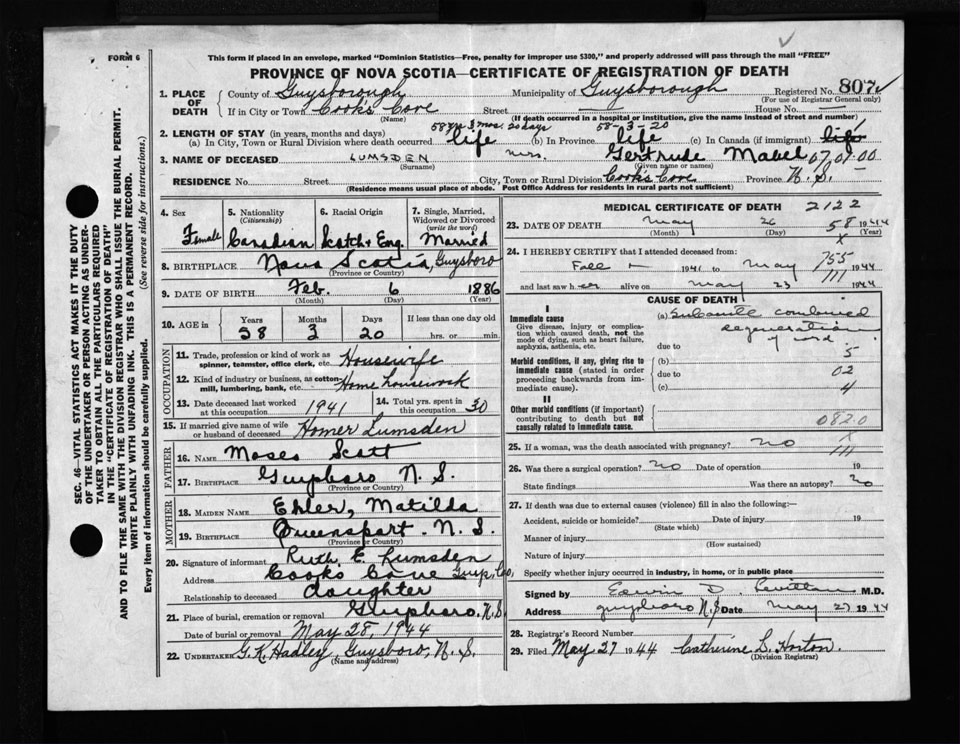 FORM 6
This form if placed in an envelope, marked "Dominion Statistics—Free, penalty for improper use $300," and properly addressed will pass through the mail "FREE"
PROVINCE OF NOVA SCOTIA—CERTIFICATE OF REGISTRATION OF DEATH
SEC. 46—VITAL STATISTICS ACT MAKES IT THE DUTY
OF THE UNDERTAKER OR PERSON ACTING AS UNDER-
TAKER TO OBTAIN ALL THE PARTICULARS REQUIRED
IN THE "CERTIFICATE OF REGISTRATION OF DEATH"
AND TO FILE THE SAME WITH THE DIVISION REGISTRAR WHO SHALL ISSUE THE BURIAL PERMIT.
WRITE PLAINLY WITH UNFADING INK. THIS IS A PERMANENT RECORD.
Every item of information should be carefully supplied. (See reverse side for instructions.)
1. PLACE OF DEATH County of Guysborough Municipality of Guysborough Registered No. 807
(For use of Registrar General only)
If in City or Town Cook's Cove Street — House No. —
(Name) (If death occurred in a hospital or institution, give the name instead of street and number)
2. LENGTH OF STAY (in years, months and days) 58 yrs. 3 mos. 20 days 58-3-20
(a) In City, Town or Rural Division where death occurred life (b) In Province life (c) In Canada (if immigrant) life
3. NAME OF DECEASED LUMSDEN mrs. Gertrude Mabel 07,07.00
(Surname) (Given name or names)
RESIDENCE No. Street City, Town or Rural Division Cooks Cove Province N.S.
(Residence means usual place of abode. Post Office Address for residents in rural parts not sufficient)
4. Sex 5. Nationality (Citizenship) 6. Racial Origin 7. Single, Married, Widowed or Divorced (write the word)
Female Canadian Scotch + Eng. Married
8. BIRTHPLACE Nova Scotia, Guysboro
(Province or Country)
9. DATE OF BIRTH Feb. 6 1886
(Month) (Day) (Year)
10. AGE in Years Months Days If less than one day old
58 3 20 hrs. or min.
OCCUPATION
11. Trade, profession or kind of work as spinner, teamster, office clerk, etc. Housewife
12. Kind of industry or business, as cotton mill, lumbering, bank, etc. Home housework
13. Date deceased last worked at this occupation 1941 14. Total yrs. spent in this occupation 30
15. If married give name of wife or husband of deceased Homer Lumsden
FATHER
16. NAME Moses Scott
17. BIRTHPLACE Guysboro N.S.
(Province or Country)
MOTHER
18. MAIDEN NAME Ehler, Matilda
19. BIRTHPLACE Queensport. N.S.
(Province or Country)
20. Signature of informant Ruth E. Lumsden
Address Cooks Cove Guys. Co.
Relationship to deceased daughter
21. Place of burial, cremation or removal Guysboro. N.S.
Date of burial or removal May 28, 1944
22. UNDERTAKER G.K. Hadley, Guysboro, N.S.
(Name and address)
MEDICAL CERTIFICATE OF DEATH 2122
23. DATE OF DEATH May 26 58 1944
(Month) (Day) (Year)
24. I HEREBY CERTIFY that I attended deceased from:
Fall 1941 to May 755 1944
and last saw her alive on May 23 111 1944
CAUSE OF DEATH
I
Immediate cause
Give disease, injury or complication which caused death, not the mode of dying, such as heart failure, asphyxia, asthenia, etc.
(a) Subacute combined
degeneration
of cord.
due to 5
Morbid conditions, if any, giving rise to immediate cause (stated in order proceeding backwards from immediate cause).
(b)
due to 02
(c) 4
II
Other morbid conditions (if important) contributing to death but not causally related to immediate cause.
082.0
25. If a woman, was the death associated with pregnancy? no
26. Was there a surgical operation? no Date of operation 19
State findings Was there an autopsy? no
27. If death was due to external causes (violence) fill in also the following:—
Accident, suicide or homicide? Date of injury 19
(State which)
Manner of injury
(How sustained)
Nature of injury
Specify whether injury occurred in industry, in home, or in public place
Signed by Edwin D. Levittan M.D.
Address guysboro N.S. Date May 27 1944
28. Registrar's Record Number
29. Filed May 27 1944 Catherine L. Horton.
(Division Registrar)